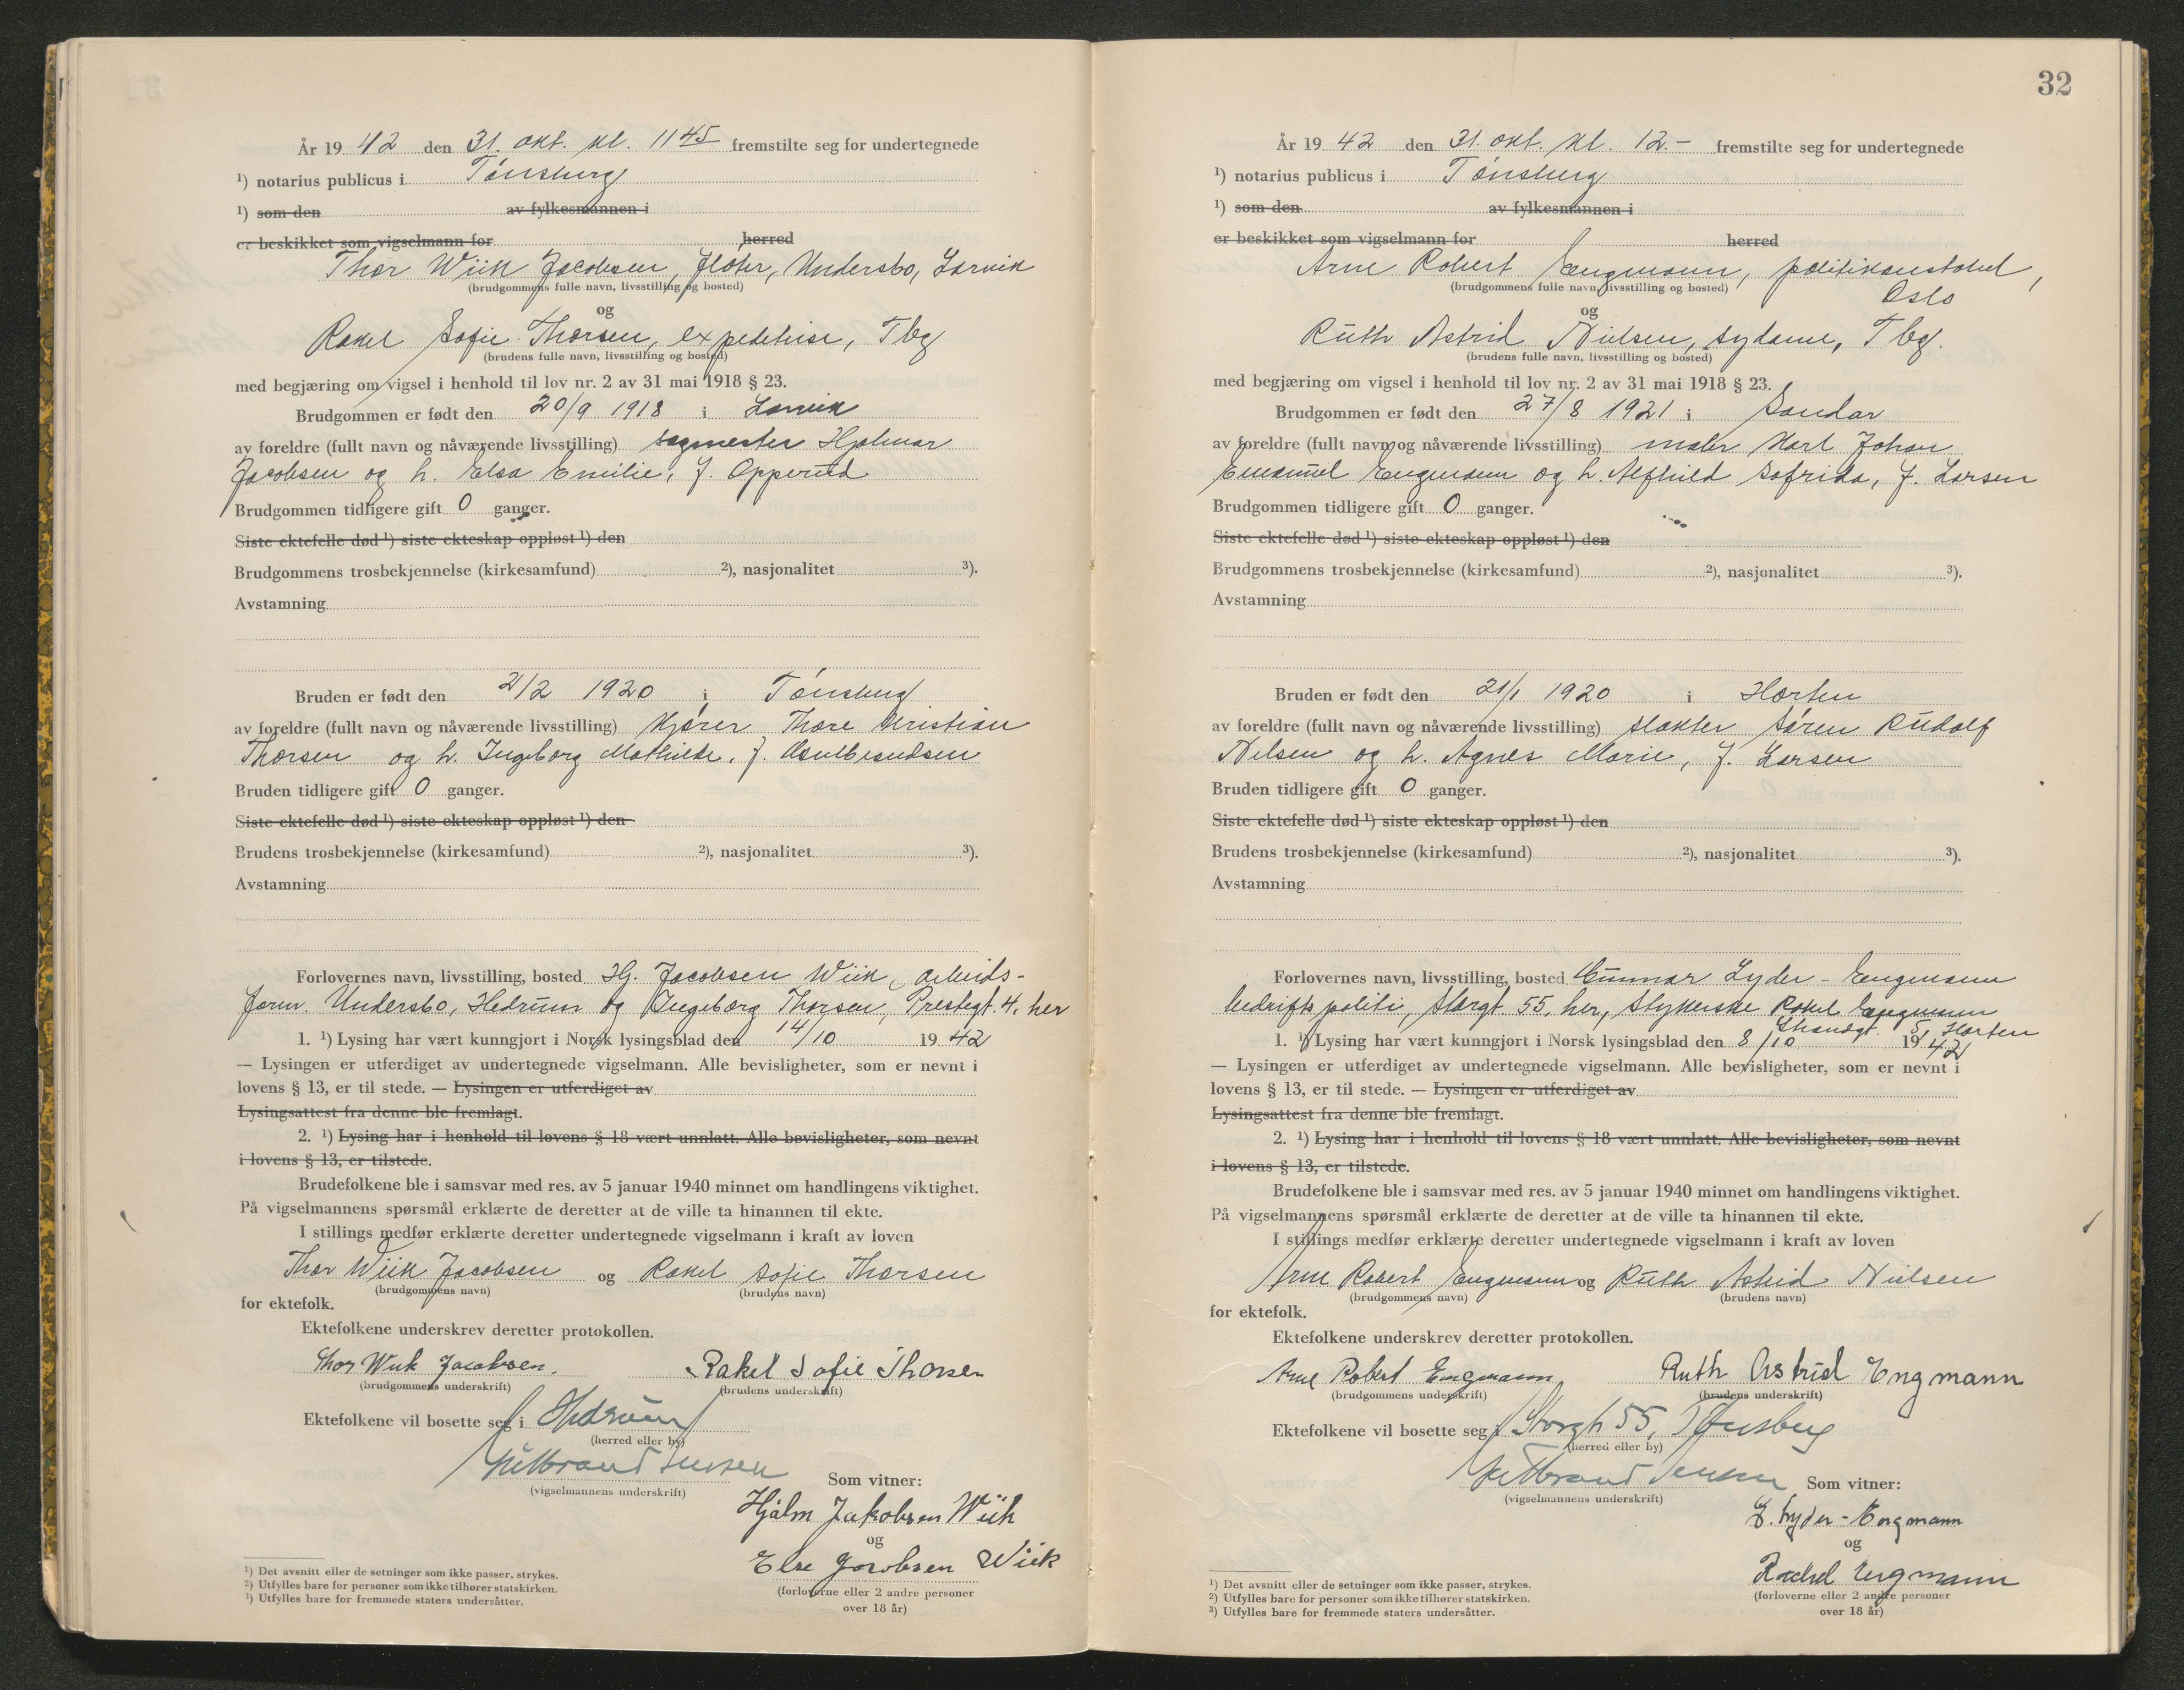 År 19 42 den 31. okt. kl. 11 45 fremstilte seg for undertegnede
¹) notarius publicus i Tønsberg
¹) som den av fylkesmannen i
er beskikket som vigselmann for herred
Thor Wiik Jacobsen, fløter, Undersbo, Larvik
(brudgommens fulle navn, livsstilling og bosted)
og
Rakel Sofie Thorsen, expeditrise, Tbg
(brudens fulle navn, livsstilling og bosted)
med begjæring om vigsel i henhold til lov nr. 2 av 31 mai 1918 § 23.
Brudgommen er født den 20/9 1918 i Larvik
av foreldre (fullt navn og nåværende livsstilling) sagmester Hjalmar
Jacobsen og h. Elsa Emilie, f. Opperud
Brudgommen tidligere gift 0 ganger.
Siste ektefelle død ¹) siste ekteskap oppløst ¹) den
Brudgommens trosbekjennelse (kirkesamfund) ²), nasjonalitet ³).
Avstamning
Bruden er født den 2/2 1920 i Tønsberg
av foreldre (fullt navn og nåværende livsstilling) kjører Thore Kristian
Thorsen og h. Ingeborg Mathilde, f.
Bruden tidligere gift 0 ganger.
Siste ektefelle død ¹) siste ekteskap oppløst ¹) den
Brudens trosbekjennelse (kirkesamfund) ²), nasjonalitet ³).
Avstamning
Forlovernes navn, livsstilling, bosted Hj. Jacobsen Wiik, arbeids-
form. Undersbo, Hedrum og Ingeborg Thorsen, Prestegt. 4, her
1. ¹) Lysing har vært kunngjort i Norsk lysingsblad den 14/10 19 42
— Lysingen er utferdiget av undertegnede vigselmann. Alle bevisligheter, som er nevnt i
lovens § 13, er til stede. — Lysingen er utferdiget av
Lysingsattest fra denne ble fremlagt.
2. ¹) Lysing har i henhold til lovens § 18 vært unnlatt. Alle bevisligheter, som nevnt
i lovens § 13, er tilstede.
Brudefolkene ble i samsvar med res. av 5 januar 1940 minnet om handlingens viktighet.
På vigselmannens spørsmål erklærte de deretter at de ville ta hinannen til ekte.
I stillings medfør erklærte deretter undertegnede vigselmann i kraft av loven
Thor Wiik Jacobsen og Rakel Sofie Thorsen
(brudgommens navn) (brudens navn)
for ektefolk.
Ektefolkene underskrev deretter protokollen.
Thor Wiik Jacobsen. Rakel Sofie Thorsen
(brudgommens underskrift) (brudens underskrift)
Ektefolkene vil bosette seg i Hedrum
(herred eller by)
Hilbrand Jensen Som vitner:
(vigselmannens underskrift)
Hjalm Jakobsen Wiik
og
Else Jacobsen Wiik
(forloverne eller 2 andre personer
over 18 år)
¹) Det avsnitt eller de setninger som ikke passer, strykes.
²) Utfylles bare for personer som ikke tilhører statskirken.
³) Utfylles bare for fremmede staters undersåtter.
32
År 19 42 den 31. okt. kl. 12.- fremstilte seg for undertegnede
¹) notarius publicus i Tønsberg
¹) som den av fylkesmannen i
er beskikket som vigselmann for herred
Arne Robert Engmann, politikonstabel,
(brudgommens fulle navn, livsstilling og bosted) Oslo
og
Ruth Astrid Nielsen, sydame, Tbg.
(brudens fulle navn, livsstilling og bosted)
med begjæring om vigsel i henhold til lov nr. 2 av 31 mai 1918 § 23.
Brudgommen er født den 27/8 1921 i Sandar
av foreldre (fullt navn og nåværende livsstilling) maler Karl Johan
Emanuel Engmann og h. Alfhild Sofrida, f. Larsen
Brudgommen tidligere gift 0 ganger.
Siste ektefelle død ¹) siste ekteskap oppløst ¹) den
Brudgommens trosbekjennelse (kirkesamfund) ²), nasjonalitet ³).
Avstamning
Bruden er født den 21/1 1920 i Horten
av foreldre (fullt navn og nåværende livsstilling) slakter Søren Rudolf
Nilsen og h. Agnes Marie, f. Larsen
Bruden tidligere gift 0 ganger.
Siste ektefelle død ¹) siste ekteskap oppløst ¹) den
Brudens trosbekjennelse (kirkesamfund) ²), nasjonalitet ³).
Avstamning
Forlovernes navn, livsstilling, bosted Gunnar Lyder-Engmann
bedriftspoliti, Storgt. 55, her, strykerske Rakel Engmann
Strandgt. 5, Horten
1. ¹) Lysing har vært kunngjort i Norsk lysingsblad den 8/10 19 42
— Lysingen er utferdiget av undertegnede vigselmann. Alle bevisligheter, som er nevnt i
lovens § 13, er til stede. — Lysingen er utferdiget av
Lysingsattest fra denne ble fremlagt.
2. ¹) Lysing har i henhold til lovens § 18 vært unnlatt. Alle bevisligheter, som nevnt
i lovens § 13, er tilstede.
Brudefolkene ble i samsvar med res. av 5 januar 1940 minnet om handlingens viktighet.
På vigselmannens spørsmål erklærte de deretter at de ville ta hinannen til ekte.
I stillings medfør erklærte deretter undertegnede vigselmann i kraft av loven
Arne Robert Engmann og Ruth Astrid Nielsen
(brudgommens navn) (brudens navn)
for ektefolk.
Ektefolkene underskrev deretter protokollen.
Arne Robert Engmann Ruth Astrid Engmann
(brudgommens underskrift) (brudens underskrift)
Ektefolkene vil bosette seg i Storgt 55, Tønsberg
(herred eller by)
Hilbrand Jensen Som vitner:
(vigselmannens underskrift)
G. Lyder-Engmann
og
Rachel Engmann
(forloverne eller 2 andre personer
over 18 år)
¹) Det avsnitt eller de setninger som ikke passer, strykes.
²) Utfylles bare for personer som ikke tilhører statskirken.
³) Utfylles bare for fremmede staters undersåtter.